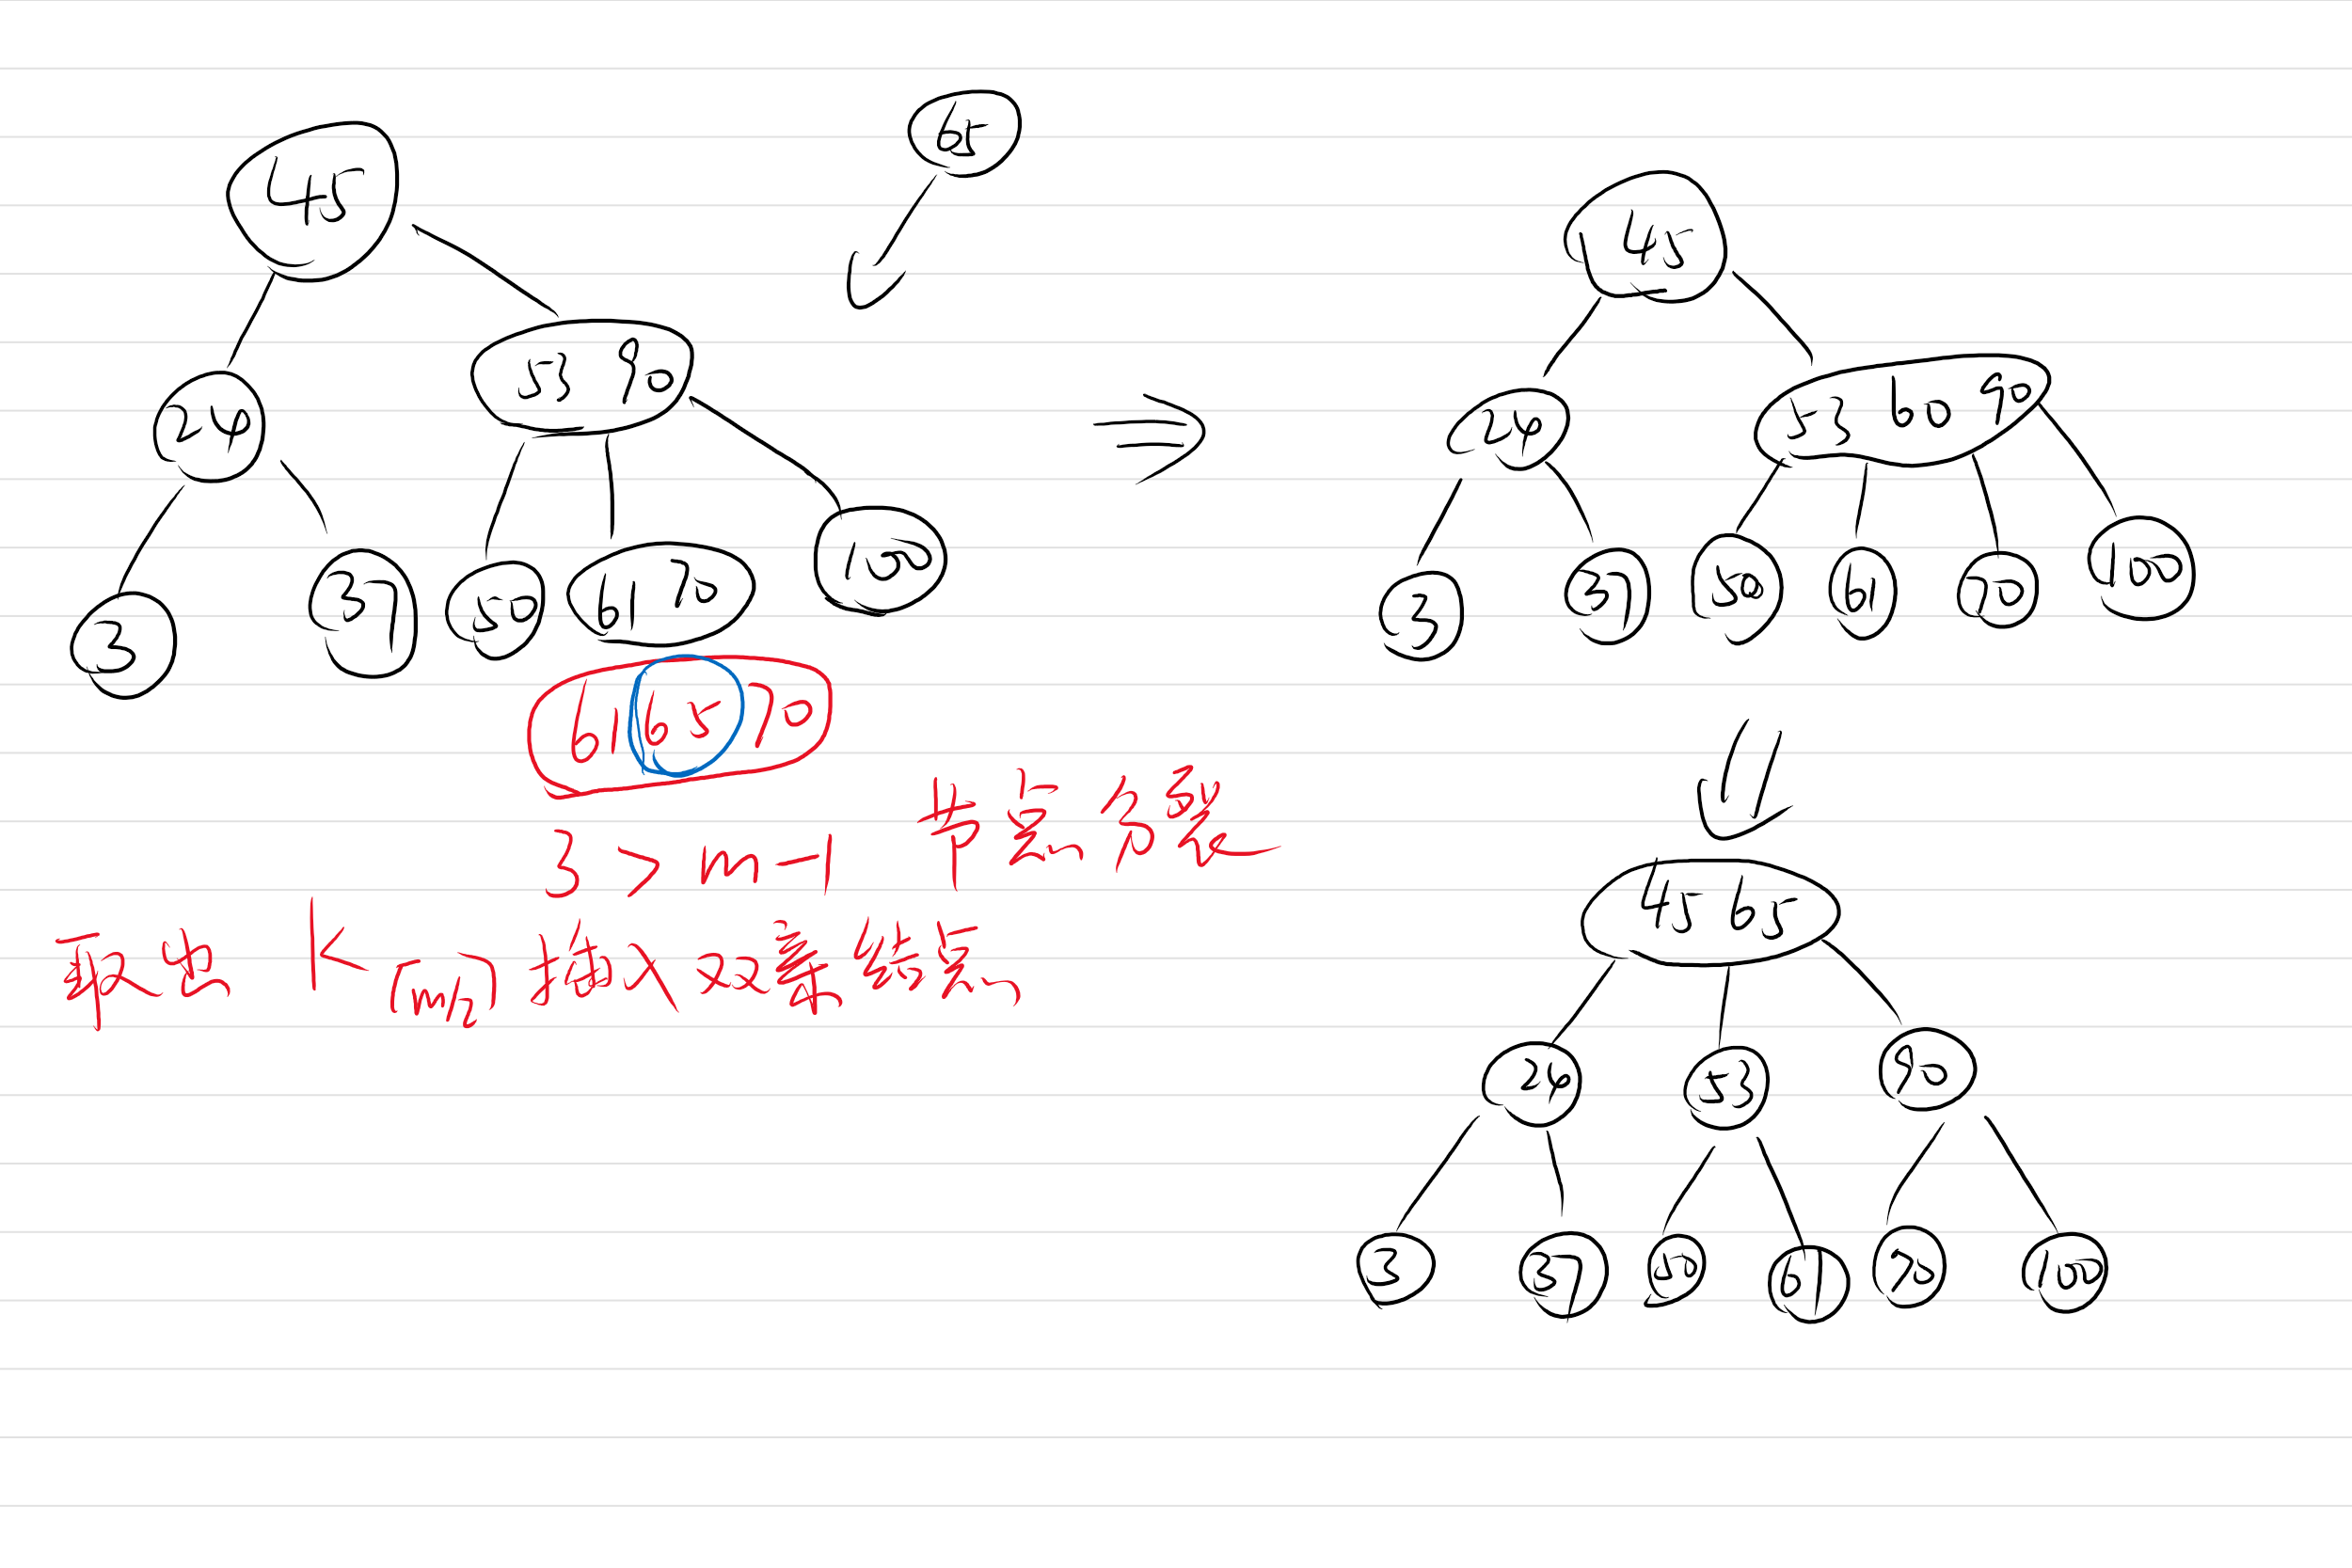 45
24
53 90
3
37
50
61 70
100
65
61 65 70
3 > m-1 节点分裂
取出 K⌈m/2⌉ 插入双亲结点
45
24
53 60 90
3
37
50
61
70
100
45 65
24
53
90
3
37
50
61
70
100